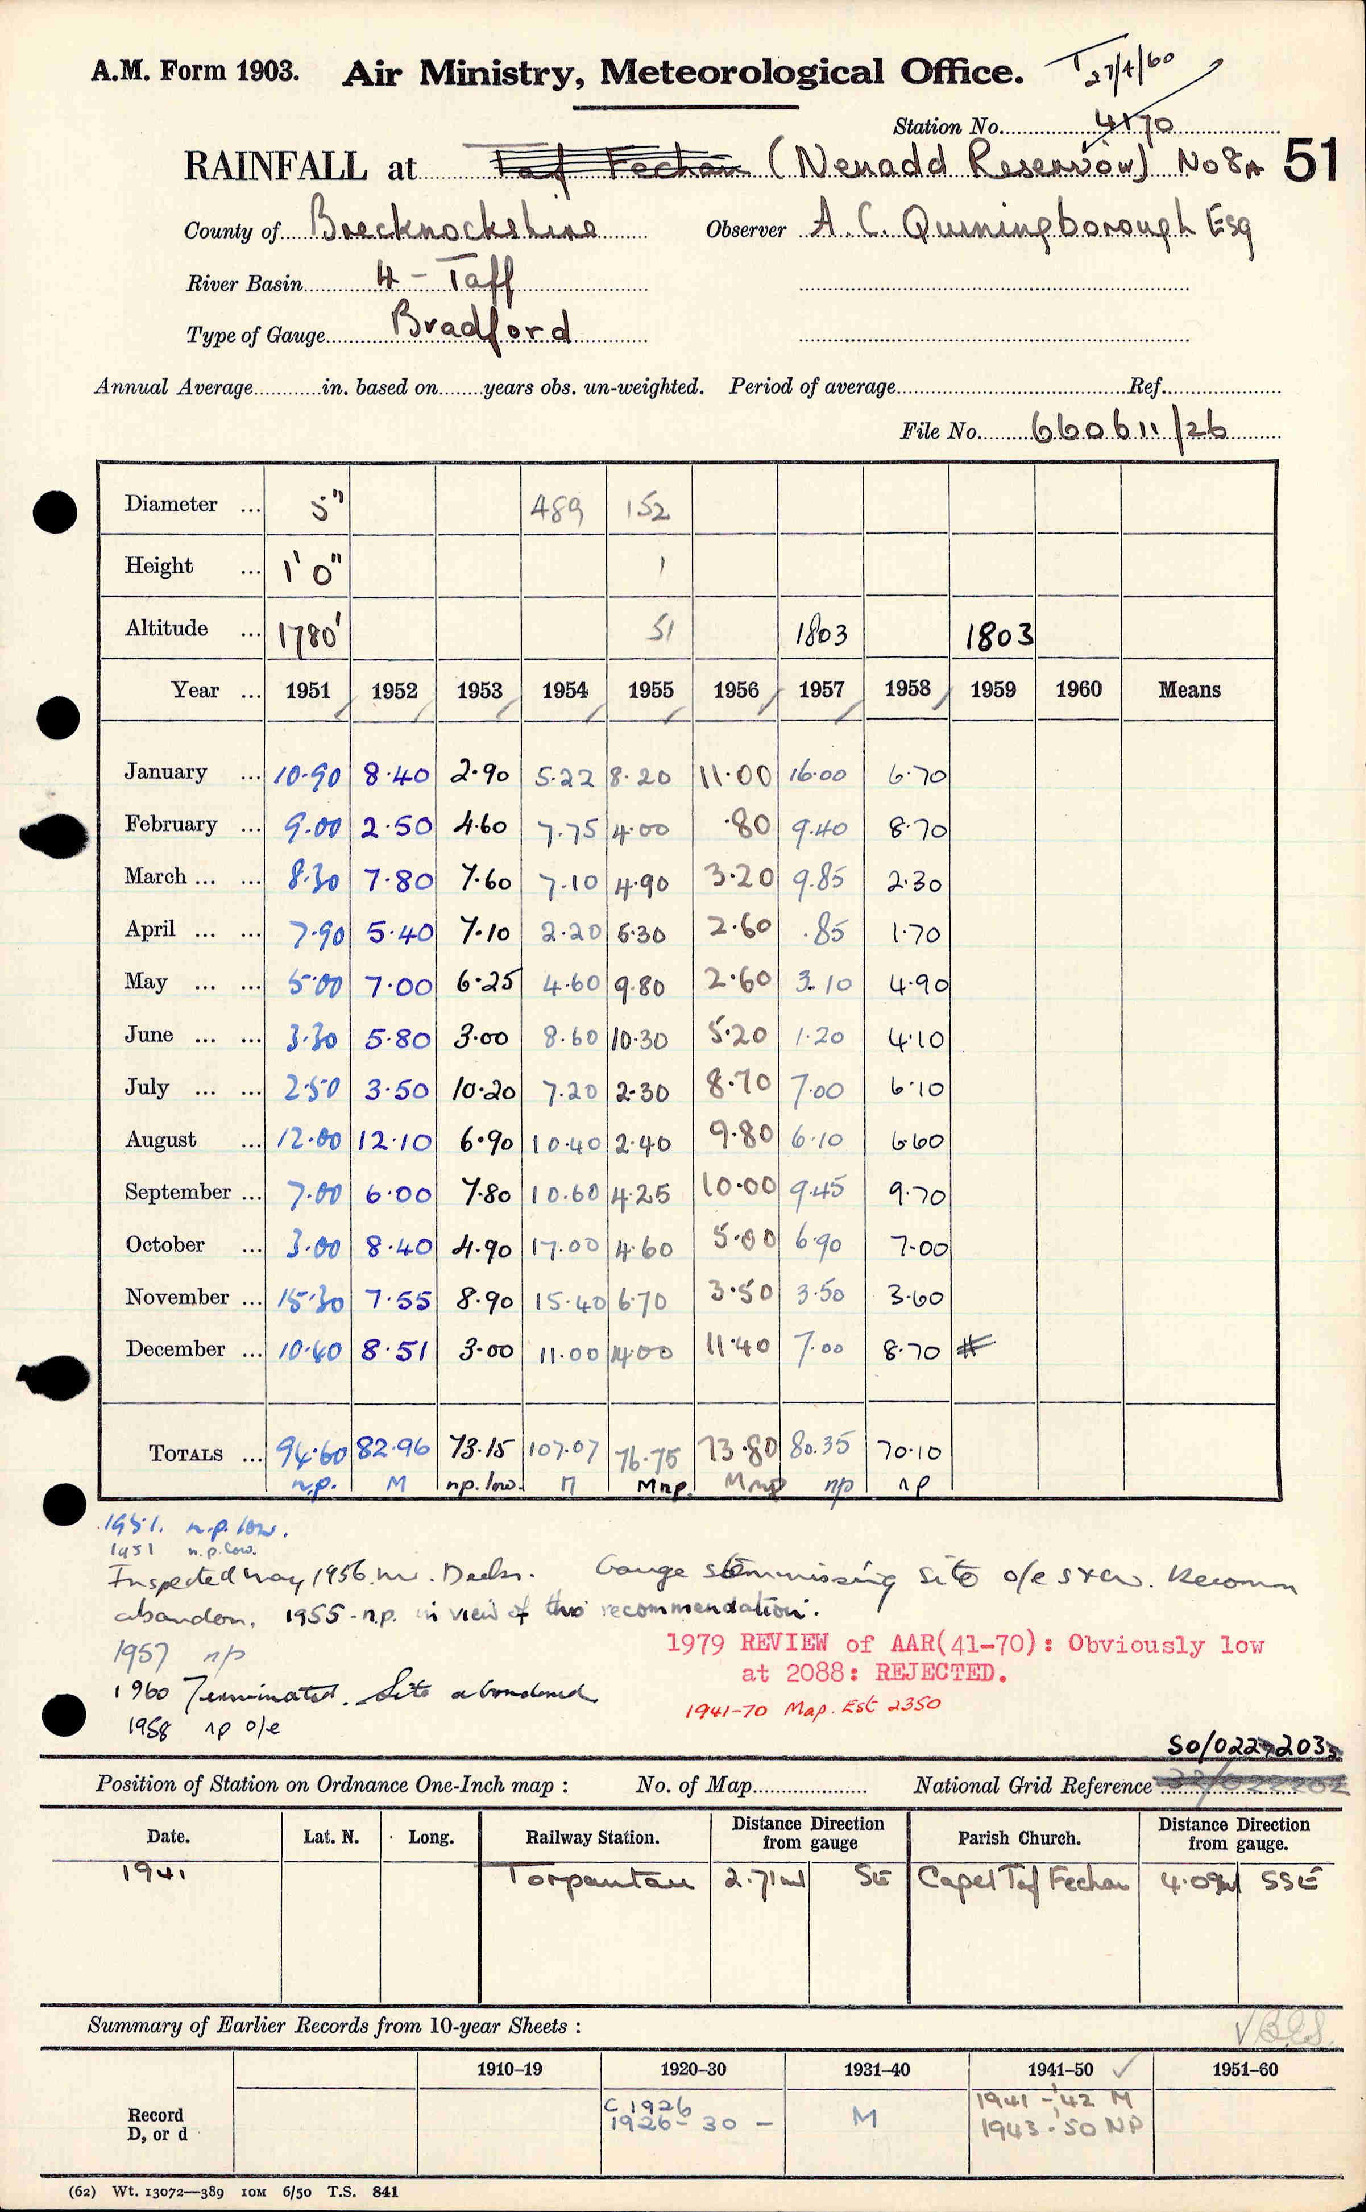 A.M. Form 1903. Air Ministry, Meteorological Office. T 27/4/60
Station No. 4170
RAINFALL at Taf Fechan (Nenadd Reservoir) No 8A 51
County of Brecknockshire Observer A. C. Quiningborough Esq
River Basin 4 - Taff
Type of Gauge Bradford
Annual Average in. based on years obs. un-weighted. Period of average Ref.
File No. 660611/26
Diameter ... 5" 489 152
Height ... 1' 0" 1
Altitude ... 1780' 51 1803 1803
Year ... 1951 1952 1953 1954 1955 1956 1957 1958 1959 1960 Means
January ... 10.90 8.40 2.90 5.22 8.20 11.00 16.00 6.70
February ... 9.00 2.50 4.60 7.75 4.00 .80 9.40 8.70
March ... ... 8.30 7.80 7.60 7.10 4.90 3.20 9.85 2.30
April ... ... 7.90 5.40 7.10 2.20 5.30 2.60 .85 1.70
May ... ... 5.00 7.00 6.25 4.60 9.80 2.60 3.10 4.90
June ... ... 3.30 5.80 3.00 8.60 10.30 5.20 1.20 4.10
July ... ... 2.50 3.50 10.20 7.20 2.30 8.70 7.00 6.10
August ... 12.00 12.10 6.90 10.40 2.40 9.80 6.10 6.60
September ... 7.00 6.00 7.80 10.60 4.25 10.00 9.45 9.70
October ... 3.00 8.40 4.90 17.00 4.60 5.00 6.90 7.00
November ... 15.30 7.55 8.90 15.40 6.70 3.50 3.50 3.60
December ... 10.40 8.51 3.00 11.00 14.00 11.40 7.00 8.70 #
TOTALS ... 94.60 82.96 73.15 107.07 76.75 73.80 80.35 70.10
n.p. M np. low. M Mnp. Mnp np np
1951. n.p. low.
1951 n.p. low.
Inspected May 1956 Mr. Gauge site o/e Recomm
abandon. 1955 - n.p. in view of this recommendation.
1957 np
1979 REVIEW of AAR(41-70): Obviously low
at 2088: REJECTED.
1960 Terminated. Site abandoned
1941-70 Map. Est 2350
1958 np o/e
SO/0227 2032
Position of Station on Ordnance One-Inch map : No. of Map National Grid Reference 32/022202
Date. Lat. N. Long. Railway Station. Distance Direction from gauge Parish Church. Distance Direction from gauge.
1941 Torpantau 2.71ml SE Capel Taf Fechan 4.09ml SSE
Summary of Earlier Records from 10-year Sheets :
1910-19 1920-30 1931-40 1941-50 ✓ 1951-60
Record C 1926 1941-'42 M
D, or d 1926-30 - M 1943-50 NP
(62) Wt. 13072—389 10M 6/50 T.S. 841